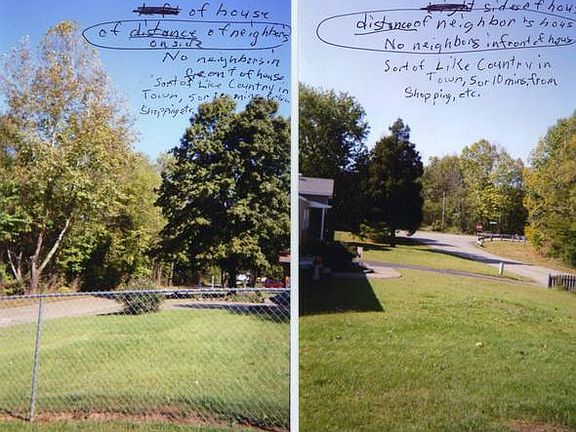 of house
of distance of neighbors
on side
No neighbors in
front of house
Sort of Like Country in
Town, 5 or 10 mins from
Shopping, etc.
right side of hou
distance of neighbors hous
No neighbors in front of hous
Sort of Like Country in
Town, 5 or 10 mins, from
Shopping, etc.